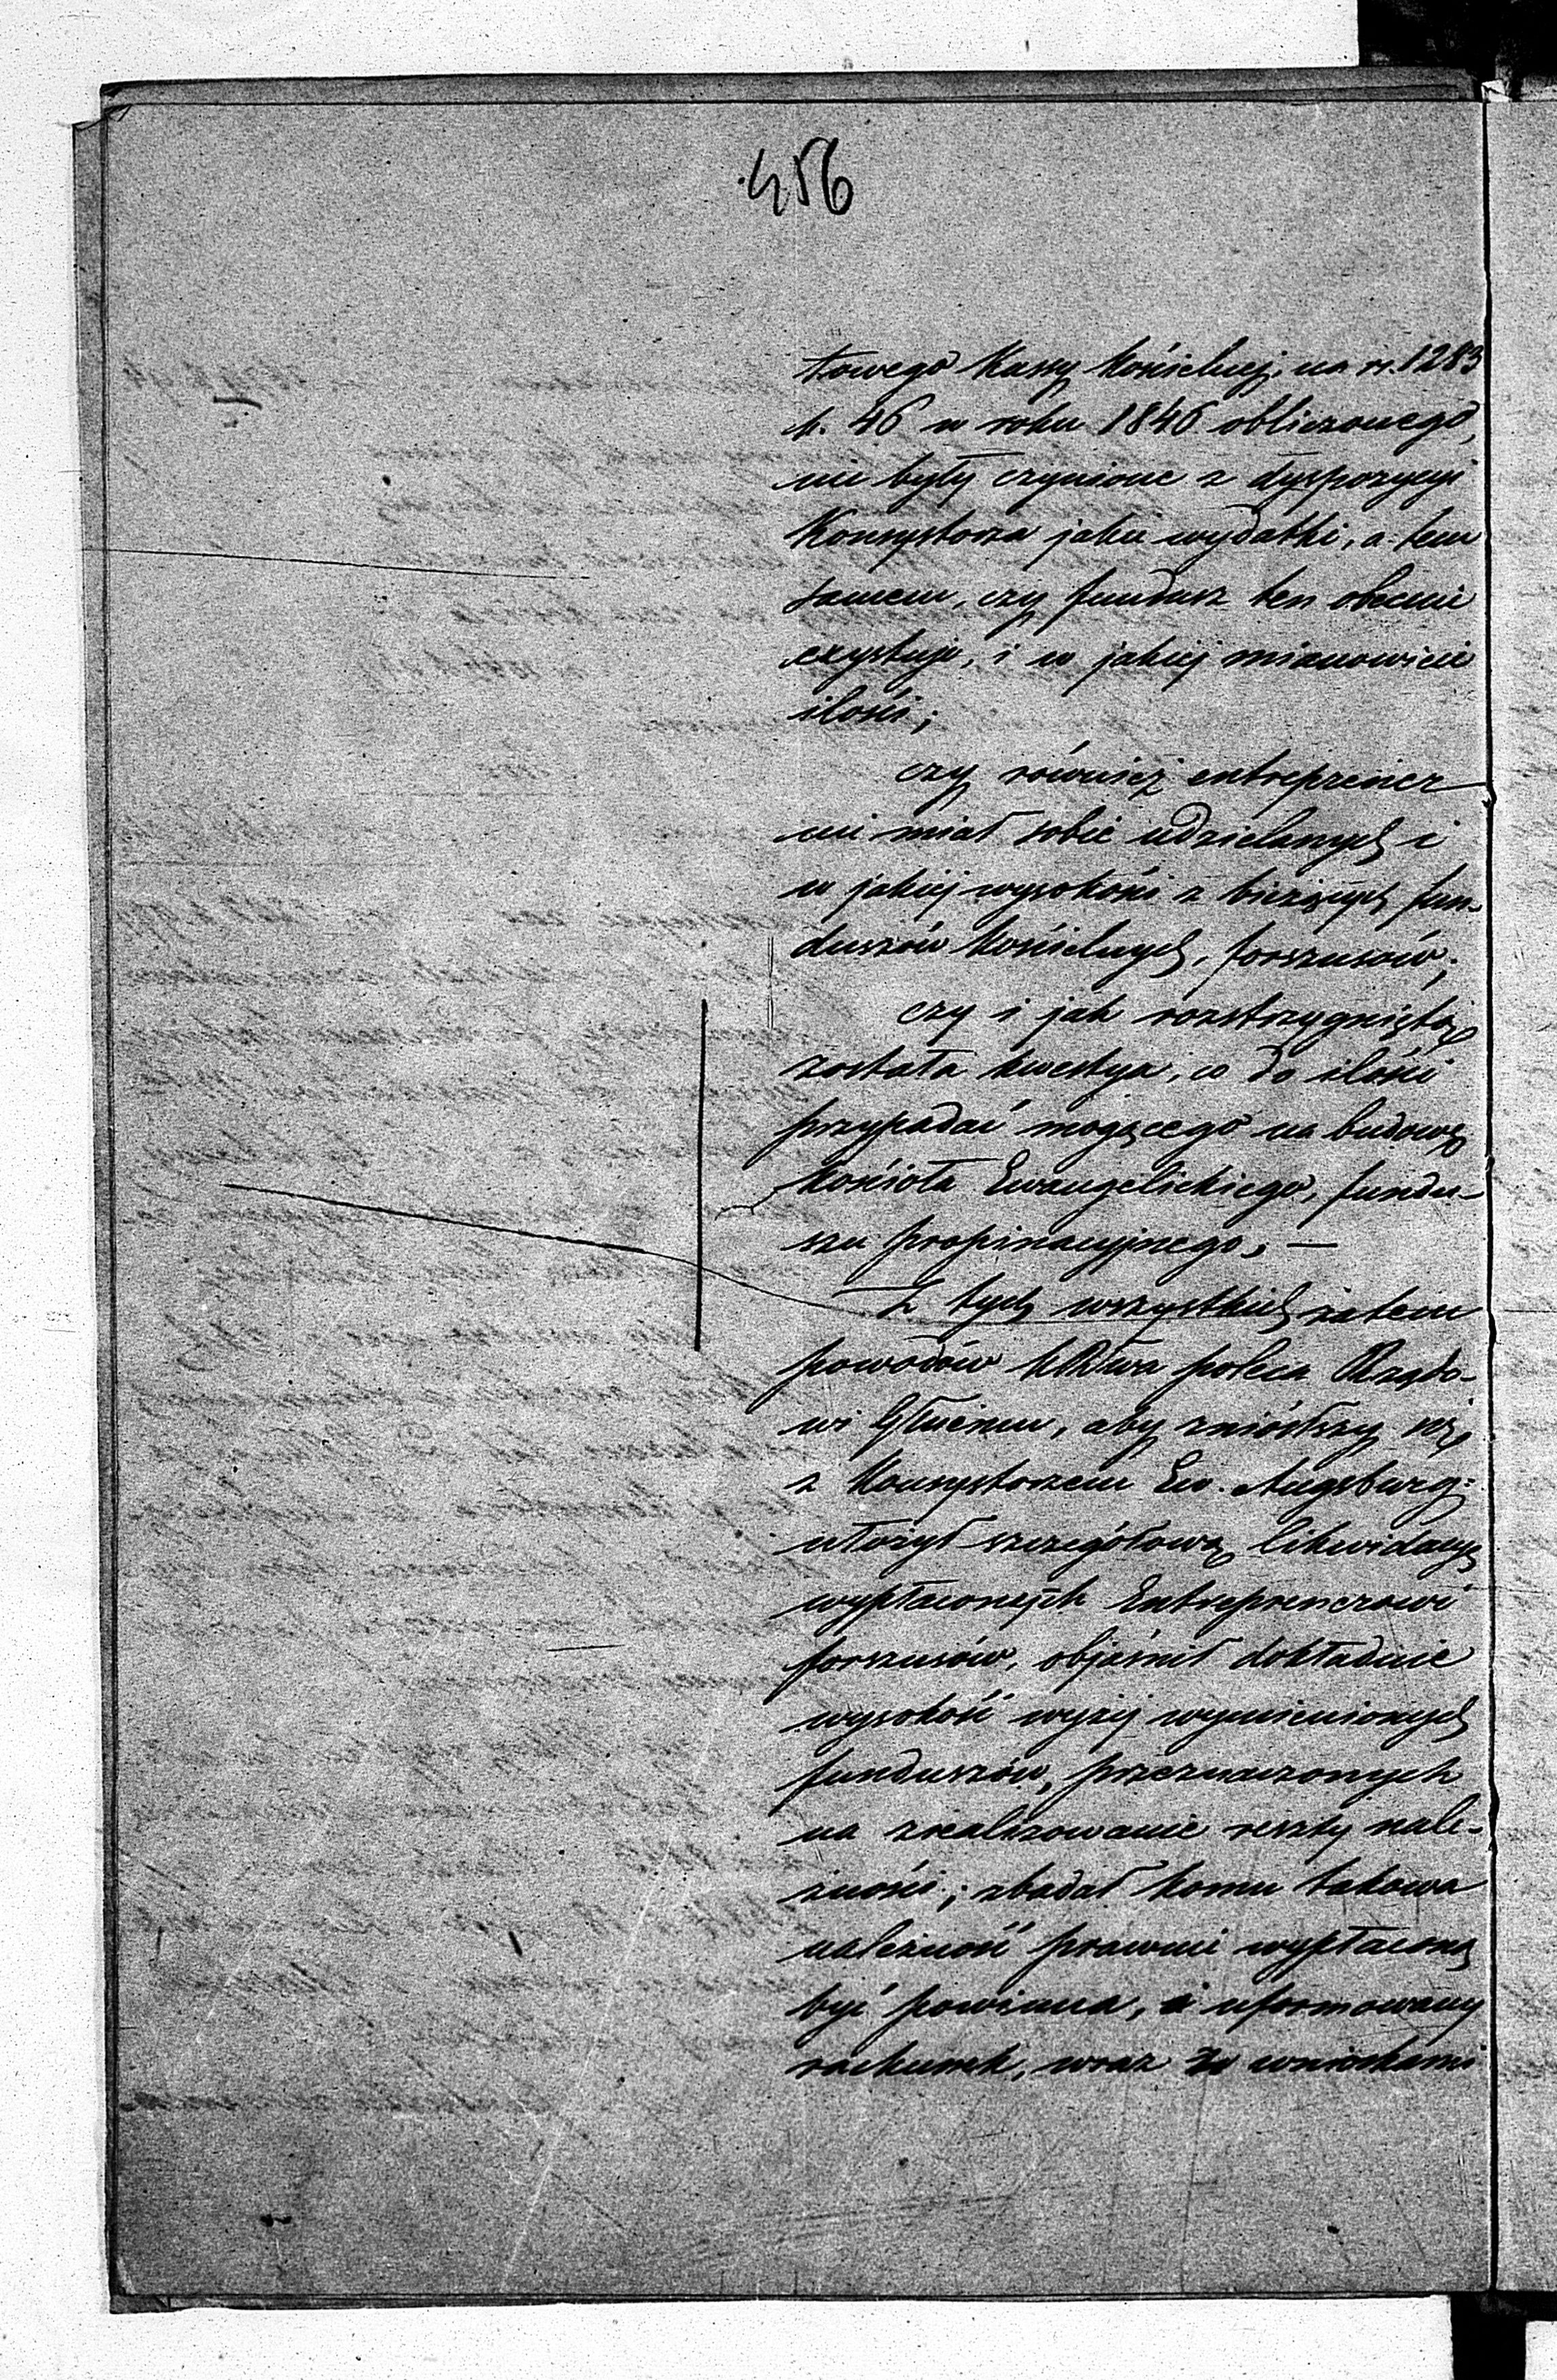 456
towego Kassy Kościelnej, na rs. 1283
k. 46 w roku 1846 obliczonego,
nie były czynione z dyspozycyi
Konsystorza jakie wydatki, a tem
samem, czy fundusz ten obecnie
exystuje, i w jakiej mianowicie
ilości;
czy również entreprener
nie miał sobie udzielanych i
w jakiej wysokości z bieżących fun-
duszów Kościelnych, forszusów;
czy i jak rozstrzygniętą
została kwestya, co do ilości
przypadać mogącego na budowę
Kościoła Ewangelickiego, fundu-
szu propinacyjnego, —
Z tych wszystkich zatem
powodów poleca Rządo-
wi Głnemu, aby zniósłszy się
z Konsystorzem Ew. Augsburg:
ułożył szczegółową likwidacyę
wypłaconych Entreprenerowi
forszusów, objaśnił dokładnie
wysokość wyżej wymienionych
funduszów, przeznaczonych
na zrealizowanie reszty nale-
żności; zbadał komu takowa
należność prawnie wypłaconą
być powinna, i uformowany
rachunek, wraz z wnioskami